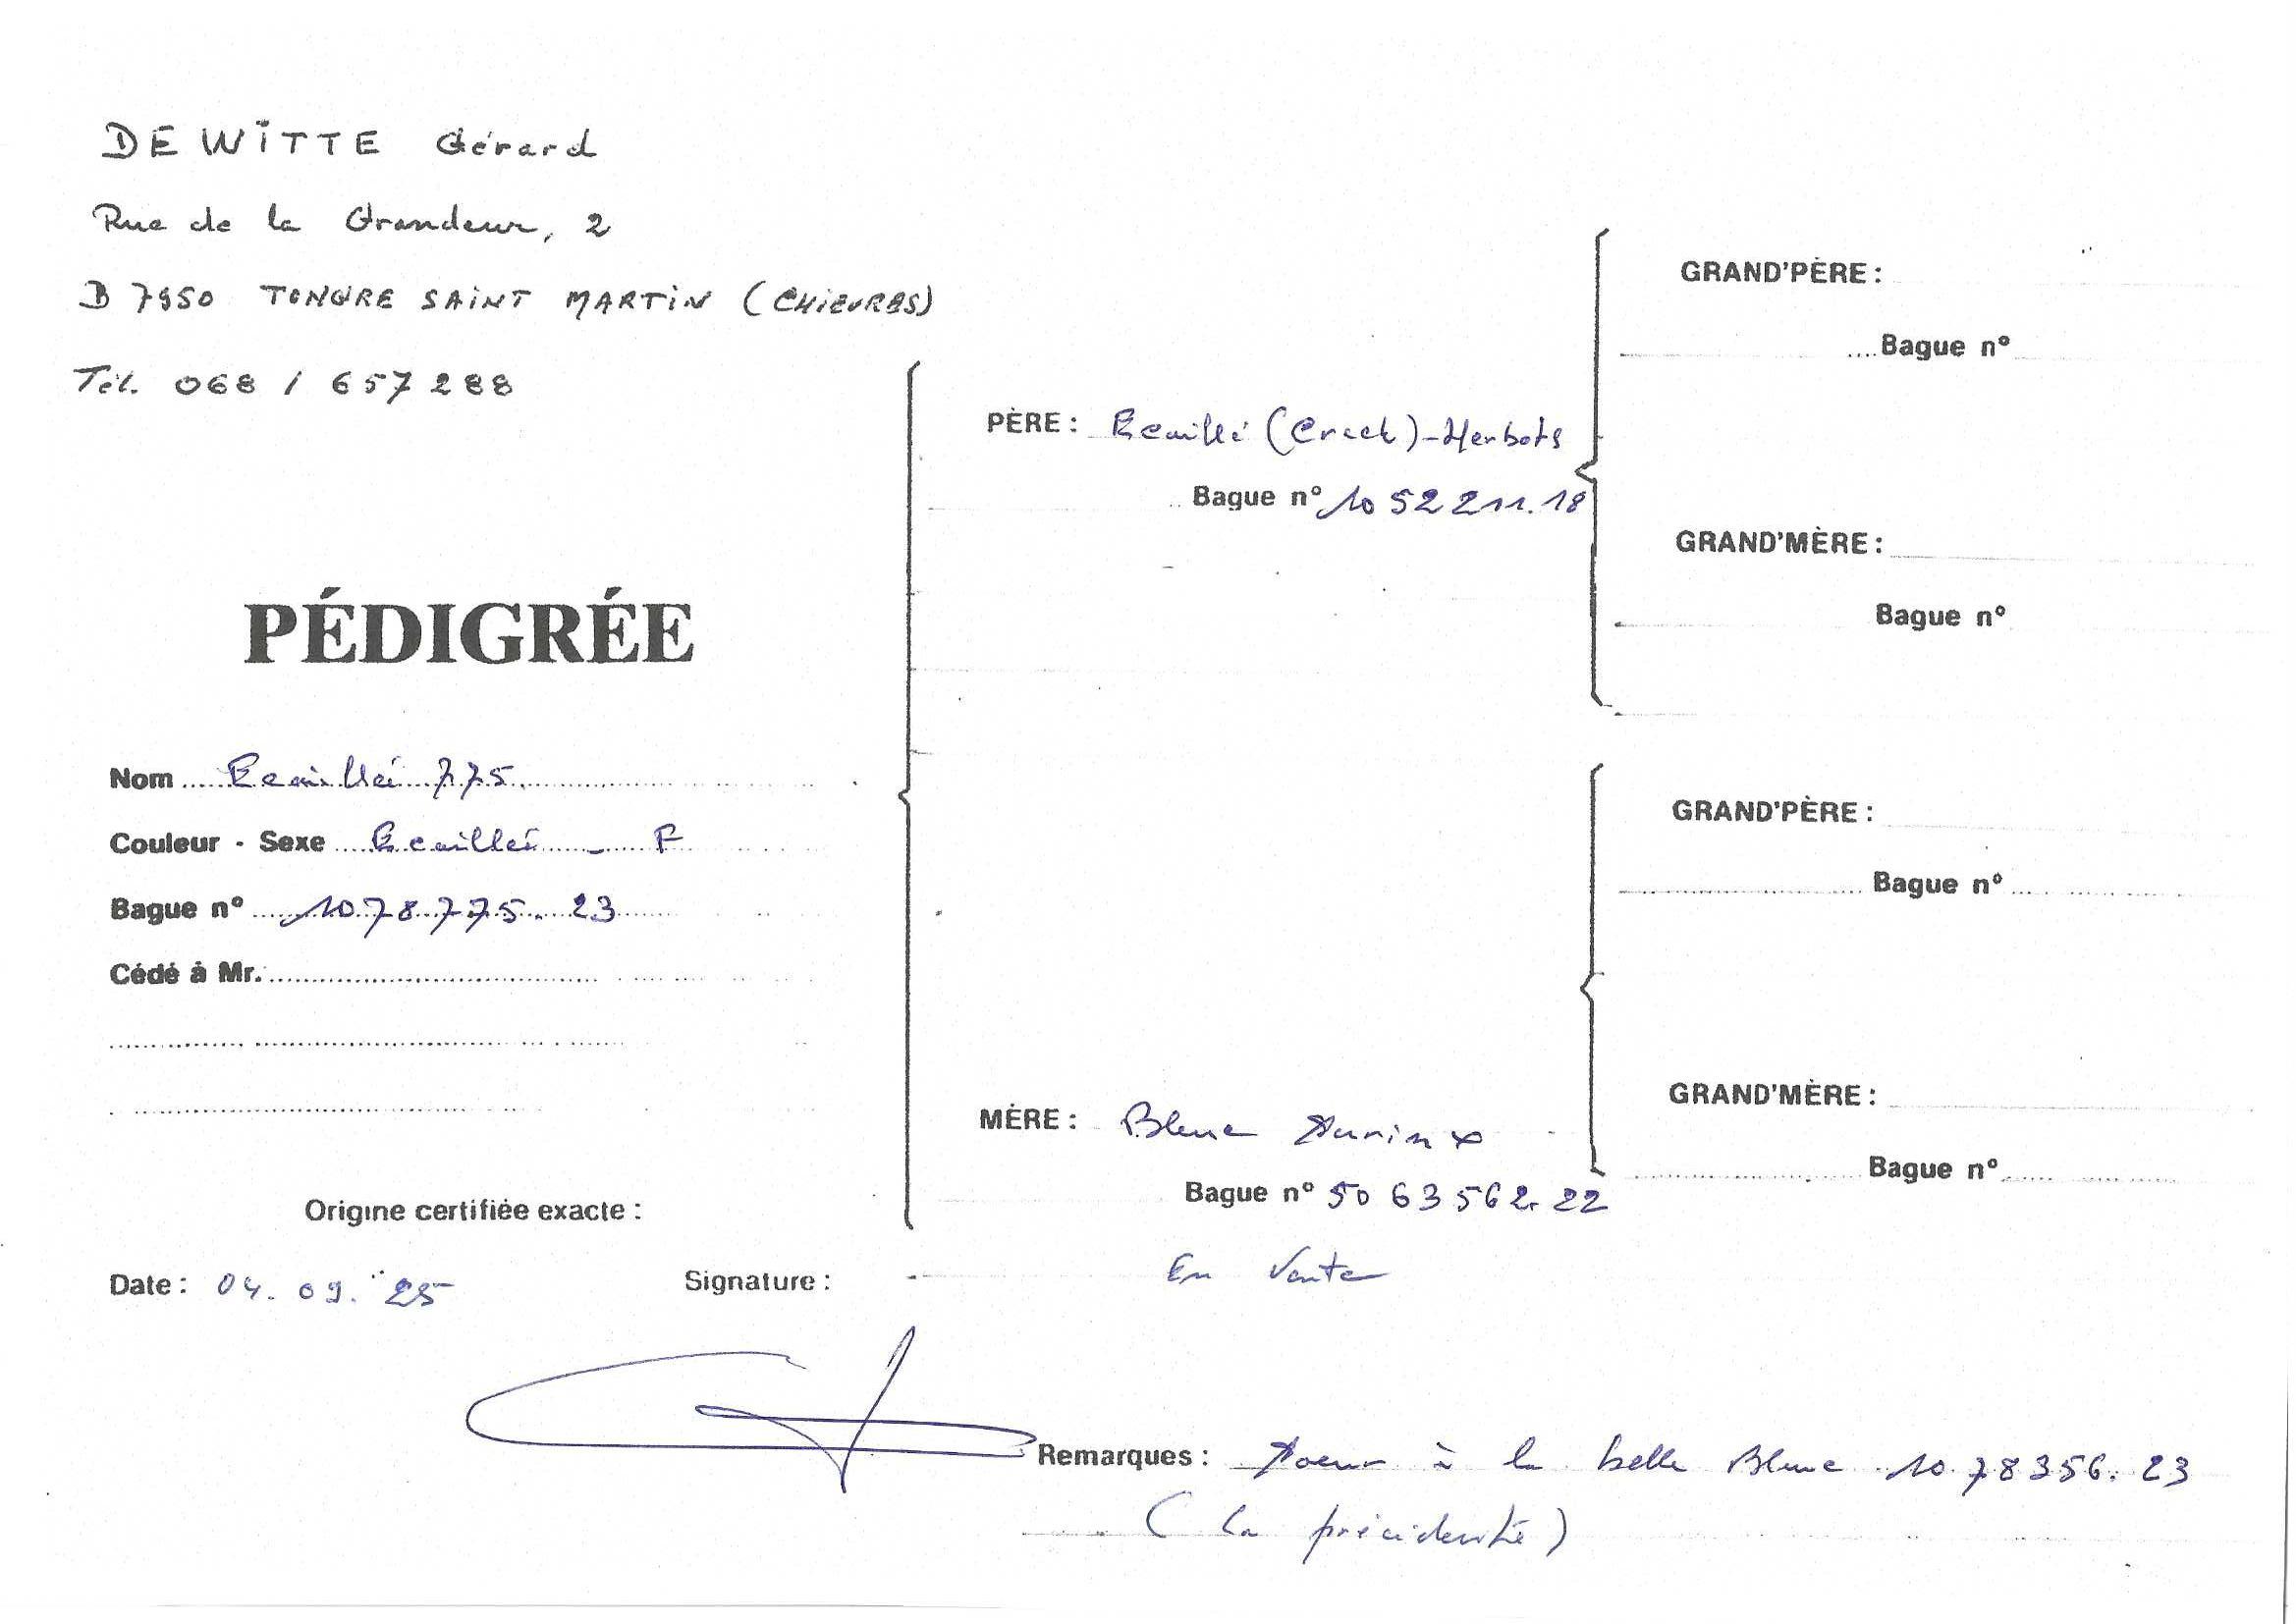 DEWITTE Gérard
Rue de la Grandeur, 2
B 7950 TONGRE SAINT MARTIN (CHIEVRES)
Tél. 068 / 657288
PÉDIGRÉE
Nom Ecaillé 775.
Couleur - Sexe Ecaillé - F
Bague n° 1078775. 23
Cédé à Mr.
Origine certifiée exacte :
Date : 04. 09. 25
Signature :
PÈRE : Ecaillé (Crack) - Herbots
Bague n° 1052211.18
MÈRE : Bleue
Bague n° 5063562. 22
En Vente
GRAND'PÈRE :
Bague n°
GRAND'MÈRE :
Bague n°
GRAND'PÈRE :
Bague n°
GRAND'MÈRE :
Bague n°
Remarques : Soeur à la belle Bleue 1078356. 23
( la )